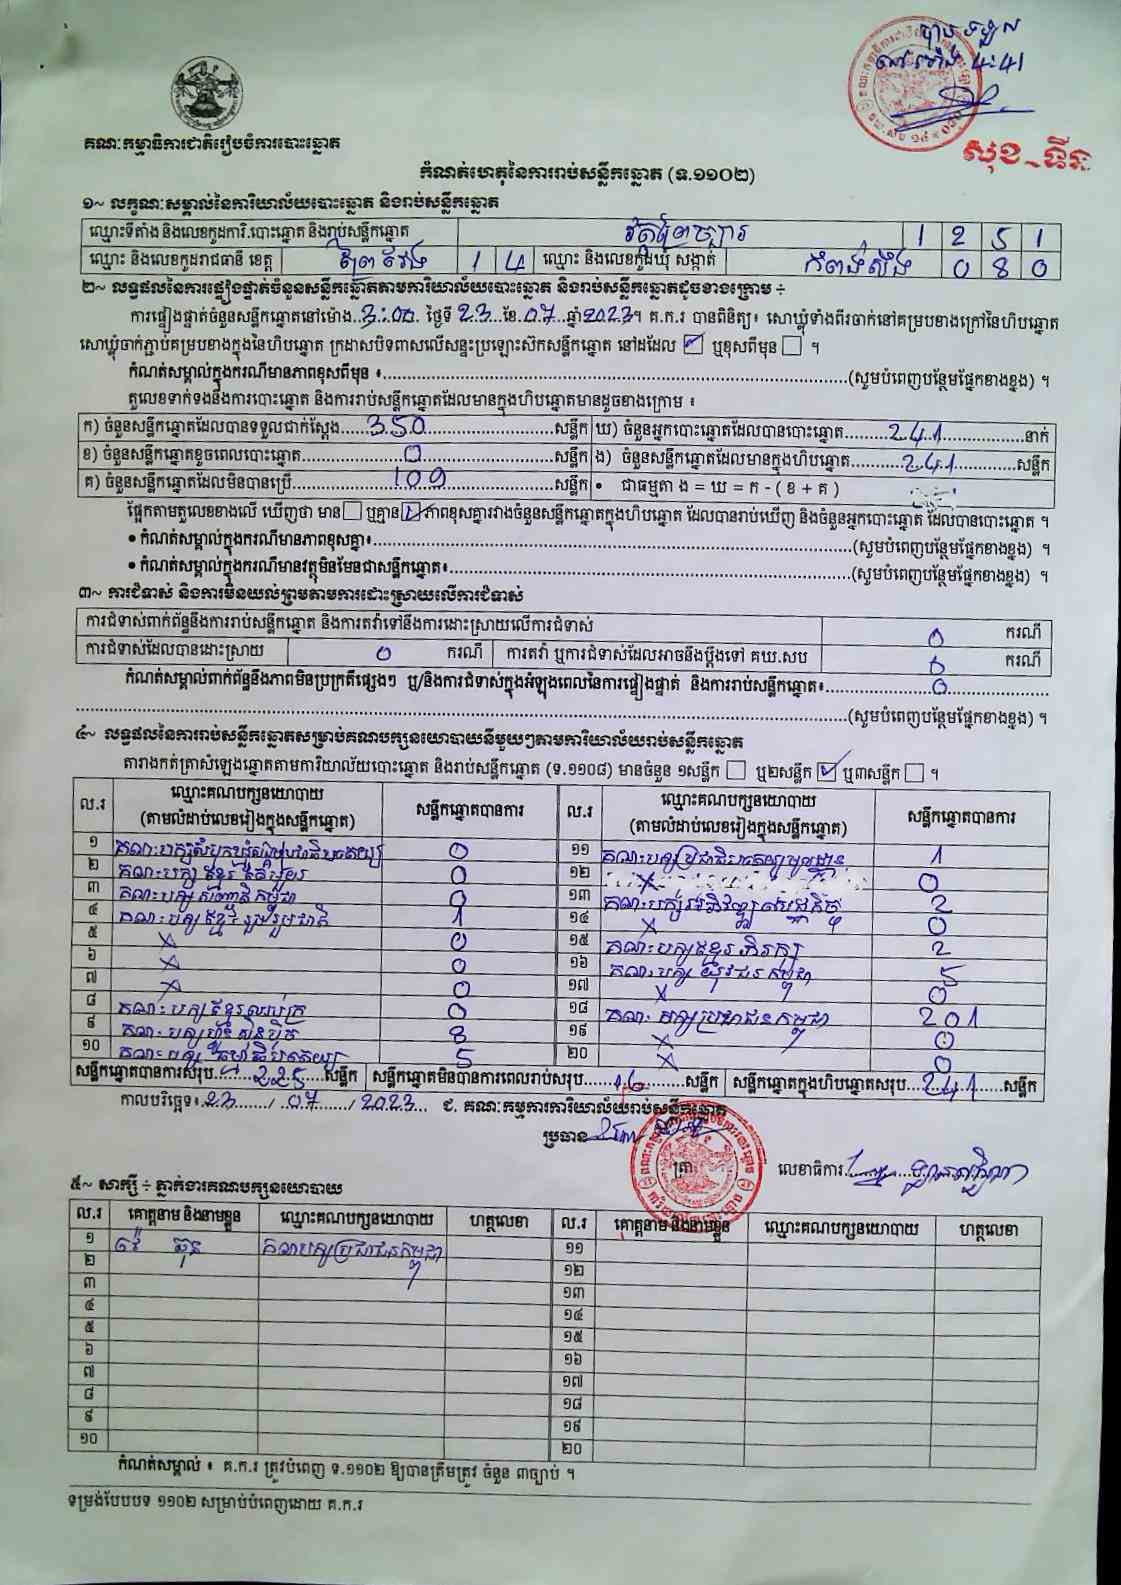 បានទទួល
នៅម៉ោង 4:41
សុខ-ទីន
គណៈកម្មាធិការជាតិរៀបចំការបោះឆ្នោត
កំណត់ហេតុនៃការរាប់សន្លឹកឆ្នោត (ទ.១១០២)
១~ លក្ខណៈសម្គាល់នៃការិយាល័យបោះឆ្នោត និងរាប់សន្លឹកឆ្នោត
ឈ្មោះទីតាំង និងលេខកូដការិ.បោះឆ្នោត និងរាប់សន្លឹកឆ្នោត 1 2 5 1
ឈ្មោះ និងលេខកូដរាជធានី ខេត្ត ព្រៃវែង 1 4 ឈ្មោះ និងលេខកូដឃុំ សង្កាត់ កំពង់ស៊ឹង 0 8 0
២~ លទ្ធផលនៃការផ្ទៀងផ្ទាត់ចំនួនសន្លឹកឆ្នោតតាមការិយាល័យបោះឆ្នោត និងរាប់សន្លឹកឆ្នោតដូចខាងក្រោម ÷
ការផ្ទៀងផ្ទាត់ចំនួនសន្លឹកឆ្នោតនៅម៉ោង..3:00. ថ្ងៃទី 23...ខែ.07...ឆ្នាំ2023។ គ.ក.រ បានពិនិត្យ៖ សោឃ្លុំទាំងពីរចាក់នៅគម្របខាងក្រៅនៃហិបឆ្នោត
សោឃ្លុំចាក់ភ្ជាប់គម្របខាងក្នុងនៃហិបឆ្នោត ក្រដាសបិទពាសលើសន្ទះប្រឡោះស៊កសន្លឹកឆ្នោត នៅដដែល ☑ ឬខុសពីមុន ☐ ។
កំណត់សម្គាល់ក្នុងករណីមានភាពខុសពីមុន ៖........(សូមបំពេញបន្ថែមផ្នែកខាងខ្នង) ។
តួលេខទាក់ទងនឹងការបោះឆ្នោត និងការរាប់សន្លឹកឆ្នោតដែលមានក្នុងហិបឆ្នោតមានដូចខាងក្រោម ៖
ក) ចំនួនសន្លឹកឆ្នោតដែលបានទទួលជាក់ស្តែង......350......សន្លឹក ឃ) ចំនួនអ្នកបោះឆ្នោតដែលបានបោះឆ្នោត......241......នាក់
ខ) ចំនួនសន្លឹកឆ្នោតខូចពេលបោះឆ្នោត......0......សន្លឹក ង) ចំនួនសន្លឹកឆ្នោតដែលមានក្នុងហិបឆ្នោត......241......សន្លឹក
គ) ចំនួនសន្លឹកឆ្នោតដែលមិនបានប្រើ......109......សន្លឹក • ជាធម្មតា ង = ឃ = ក - ( ខ + គ )
ផ្អែកតាមតួលេខខាងលើ ឃើញថា មាន ☐ ឬគ្មាន ☑ ភាពខុសគ្នារវាងចំនួនសន្លឹកឆ្នោតក្នុងហិបឆ្នោត ដែលបានរាប់ឃើញ និងចំនួនអ្នកបោះឆ្នោត ដែលបានបោះឆ្នោត ។
• កំណត់សម្គាល់ក្នុងករណីមានភាពខុសគ្នា៖........(សូមបំពេញបន្ថែមផ្នែកខាងខ្នង) ។
• កំណត់សម្គាល់ក្នុងករណីមានវត្ថុមិនមែនជាសន្លឹកឆ្នោត៖........(សូមបំពេញបន្ថែមផ្នែកខាងខ្នង) ។
៣~ ការជំទាស់ និងការមិនយល់ព្រមតាមការដោះស្រាយលើការជំទាស់
ការជំទាស់ពាក់ព័ន្ធនឹងការរាប់សន្លឹកឆ្នោត និងការតវ៉ាទៅនឹងការដោះស្រាយលើការជំទាស់ 0 ករណី
ការជំទាស់ដែលបានដោះស្រាយ 0 ករណី ការតវ៉ា ឬការជំទាស់ដែលអាចនឹងប្តឹងទៅ គឃ.សប 0 ករណី
កំណត់សម្គាល់ពាក់ព័ន្ធនឹងភាពមិនប្រក្រតីផ្សេងៗ ឬ/និងការជំទាស់ក្នុងអំឡុងពេលនៃការផ្ទៀងផ្ទាត់ និងការរាប់សន្លឹកឆ្នោត៖......0......
........(សូមបំពេញបន្ថែមផ្នែកខាងខ្នង) ។
៤~ លទ្ធផលនៃការរាប់សន្លឹកឆ្នោតសម្រាប់គណបក្សនយោបាយនីមួយៗតាមការិយាល័យរាប់សន្លឹកឆ្នោត
តារាងកត់ត្រាសំឡេងឆ្នោតតាមការិយាល័យបោះឆ្នោត និងរាប់សន្លឹកឆ្នោត (ទ.១១០៨) មានចំនួន ១សន្លឹក ☐ ឬ២សន្លឹក ☑ ឬ៣សន្លឹក ☐ ។
ល.រ ឈ្មោះគណបក្សនយោបាយ (តាមលំដាប់លេខរៀងក្នុងសន្លឹកឆ្នោត) សន្លឹកឆ្នោតបានការ ល.រ ឈ្មោះគណបក្សនយោបាយ (តាមលំដាប់លេខរៀងក្នុងសន្លឹកឆ្នោត) សន្លឹកឆ្នោតបានការ
១ 0 ១១ គណៈបក្សប្រជាធិបតេយ្យមូលដ្ឋាន 1
២ គណៈបក្សខ្មែរតែមួយ 0 ១២ X 0
៣ គណៈបក្សសញ្ជាតិកម្ពុជា 0 ១៣ 2
៤ គណៈបក្សខ្មែររួបរួមជាតិ 1 ១៤ X 0
៥ X 0 ១៥ គណៈបក្សខ្មែរអភិរក្ស 2
៦ X 0 ១៦ គណៈបក្សយុវជនកម្ពុជា 5
៧ X 0 ១៧ X 0
៨ គណៈបក្សខ្មែរឈប់ក្រ 0 ១៨ គណៈបក្សប្រជាជនកម្ពុជា 201
៩ គណៈបក្សហ្វ៊ុនស៊ិនប៉ិច 8 ១៩ X 0
១០ 5 ២០ X 0
សន្លឹកឆ្នោតបានការសរុប......225......សន្លឹក សន្លឹកឆ្នោតមិនបានការពេលរាប់សរុប......16......សន្លឹក សន្លឹកឆ្នោតក្នុងហិបឆ្នោតសរុប...241......សន្លឹក
កាលបរិច្ឆេទ៖ 23 / 07 / 2023 ជ. គណៈកម្មការការិយាល័យរាប់សន្លឹកឆ្នោត
ប្រធាន ត្រា លេខាធិការ
៥~ សាក្សី ÷ ភ្នាក់ងារគណបក្សនយោបាយ
ល.រ គោត្តនាម និងនាមខ្លួន ឈ្មោះគណបក្សនយោបាយ ហត្ថលេខា ល.រ គោត្តនាម និងនាមខ្លួន ឈ្មោះគណបក្សនយោបាយ ហត្ថលេខា
១ គណបក្សប្រជាជនកម្ពុជា ១១
២ ១២
៣ ១៣
៤ ១៤
៥ ១៥
៦ ១៦
៧ ១៧
៨ ១៨
៩ ១៩
១០ ២០
កំណត់សម្គាល់ ៖ គ.ក.រ ត្រូវបំពេញ ទ.១១០២ ឱ្យបានត្រឹមត្រូវ ចំនួន ៣ច្បាប់ ។
ទម្រង់បែបបទ ១១០២ សម្រាប់បំពេញដោយ គ.ក.រ